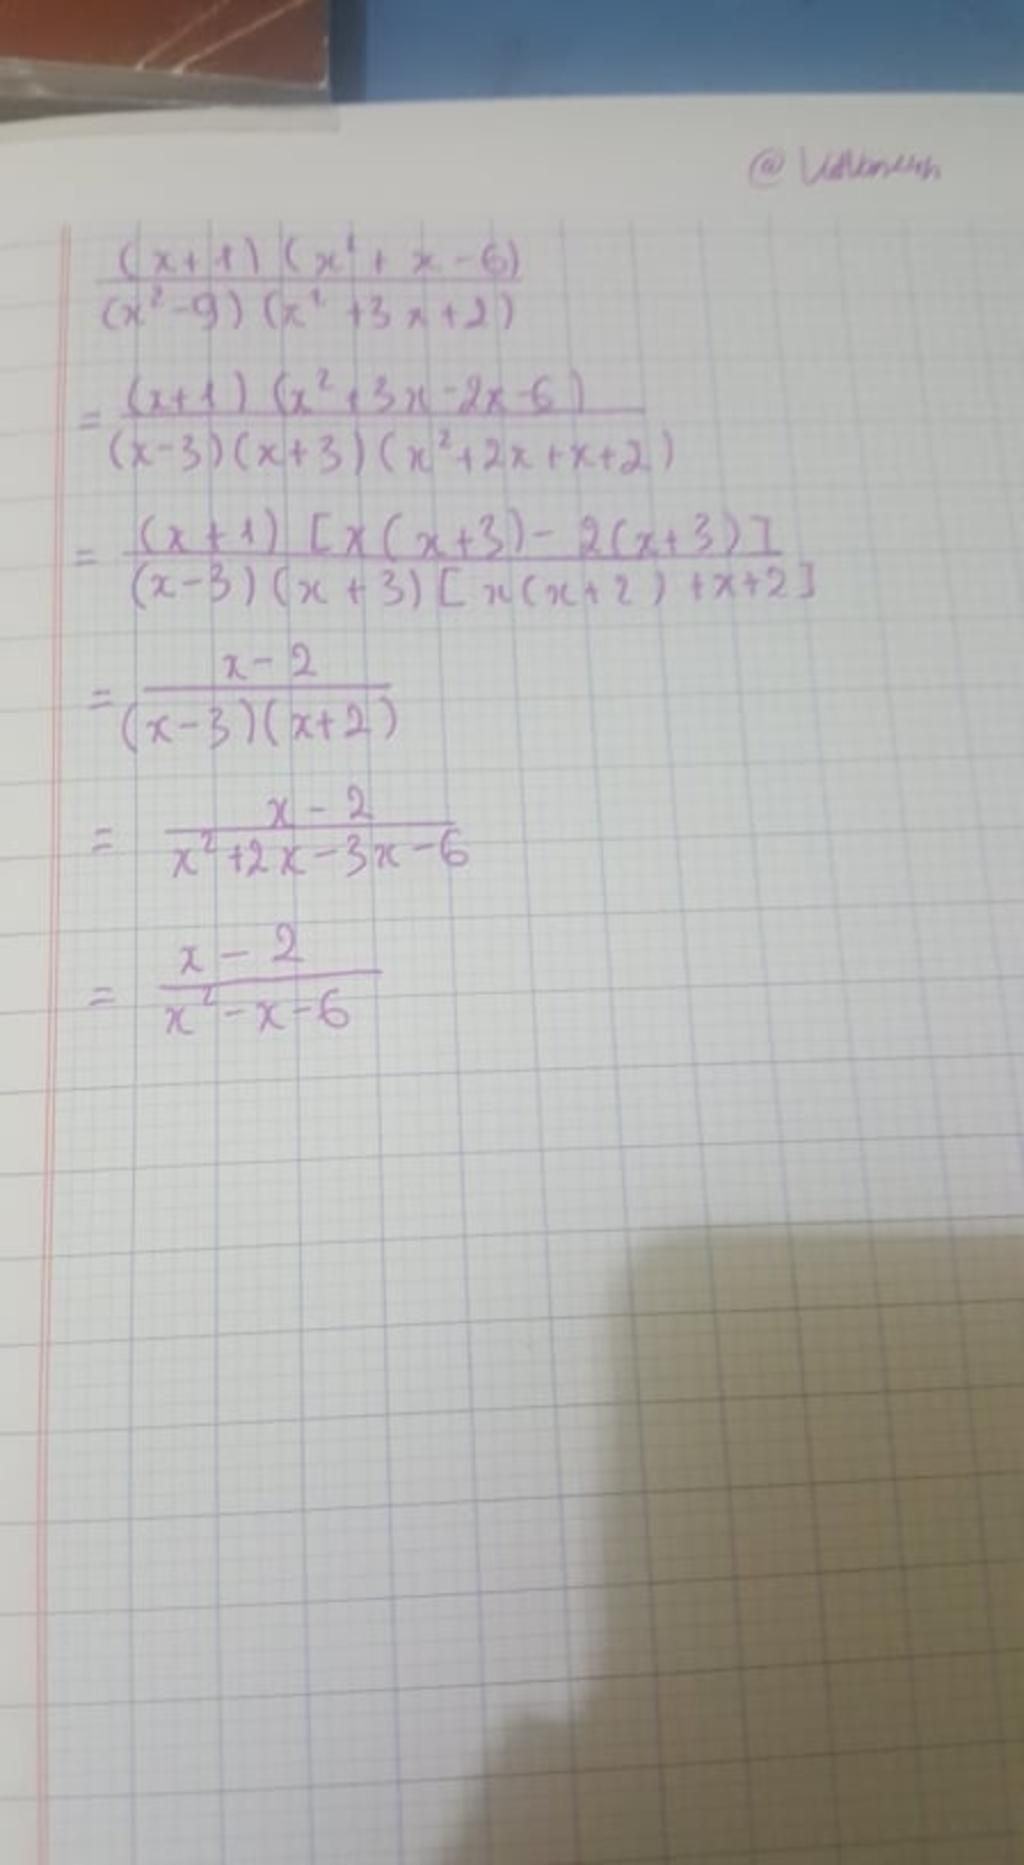 (x+1)(x²+x-6)
(x²-9)(x²+3x+2)
= (x+1)(x²+3x-2x-6)
(x-3)(x+3)(x²+2x+x+2)
= (x+1)[x(x+3)-2(x+3)]
(x-3)(x+3)[x(x+2)+x+2]
= x-2
(x-3)(x+2)
= x-2
x²+2x-3x-6
= x-2
x²-x-6